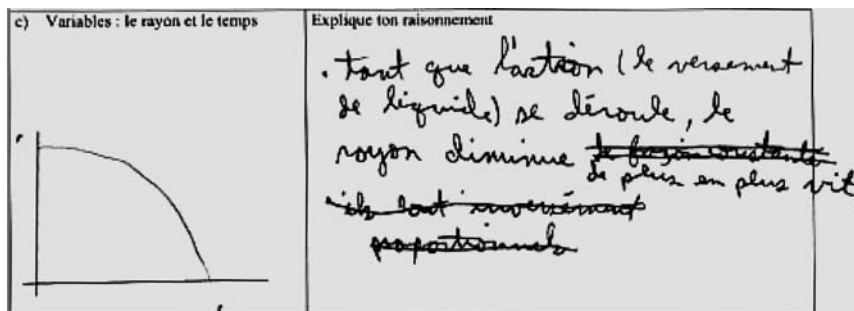 c) Variables : le rayon et le temps
Explique ton raisonnement
r
. tant que l'action (le versement
de liquide) se déroule, le
rayon diminue de façon constante
de plus en plus vit
ils sont inversément
proportionnels